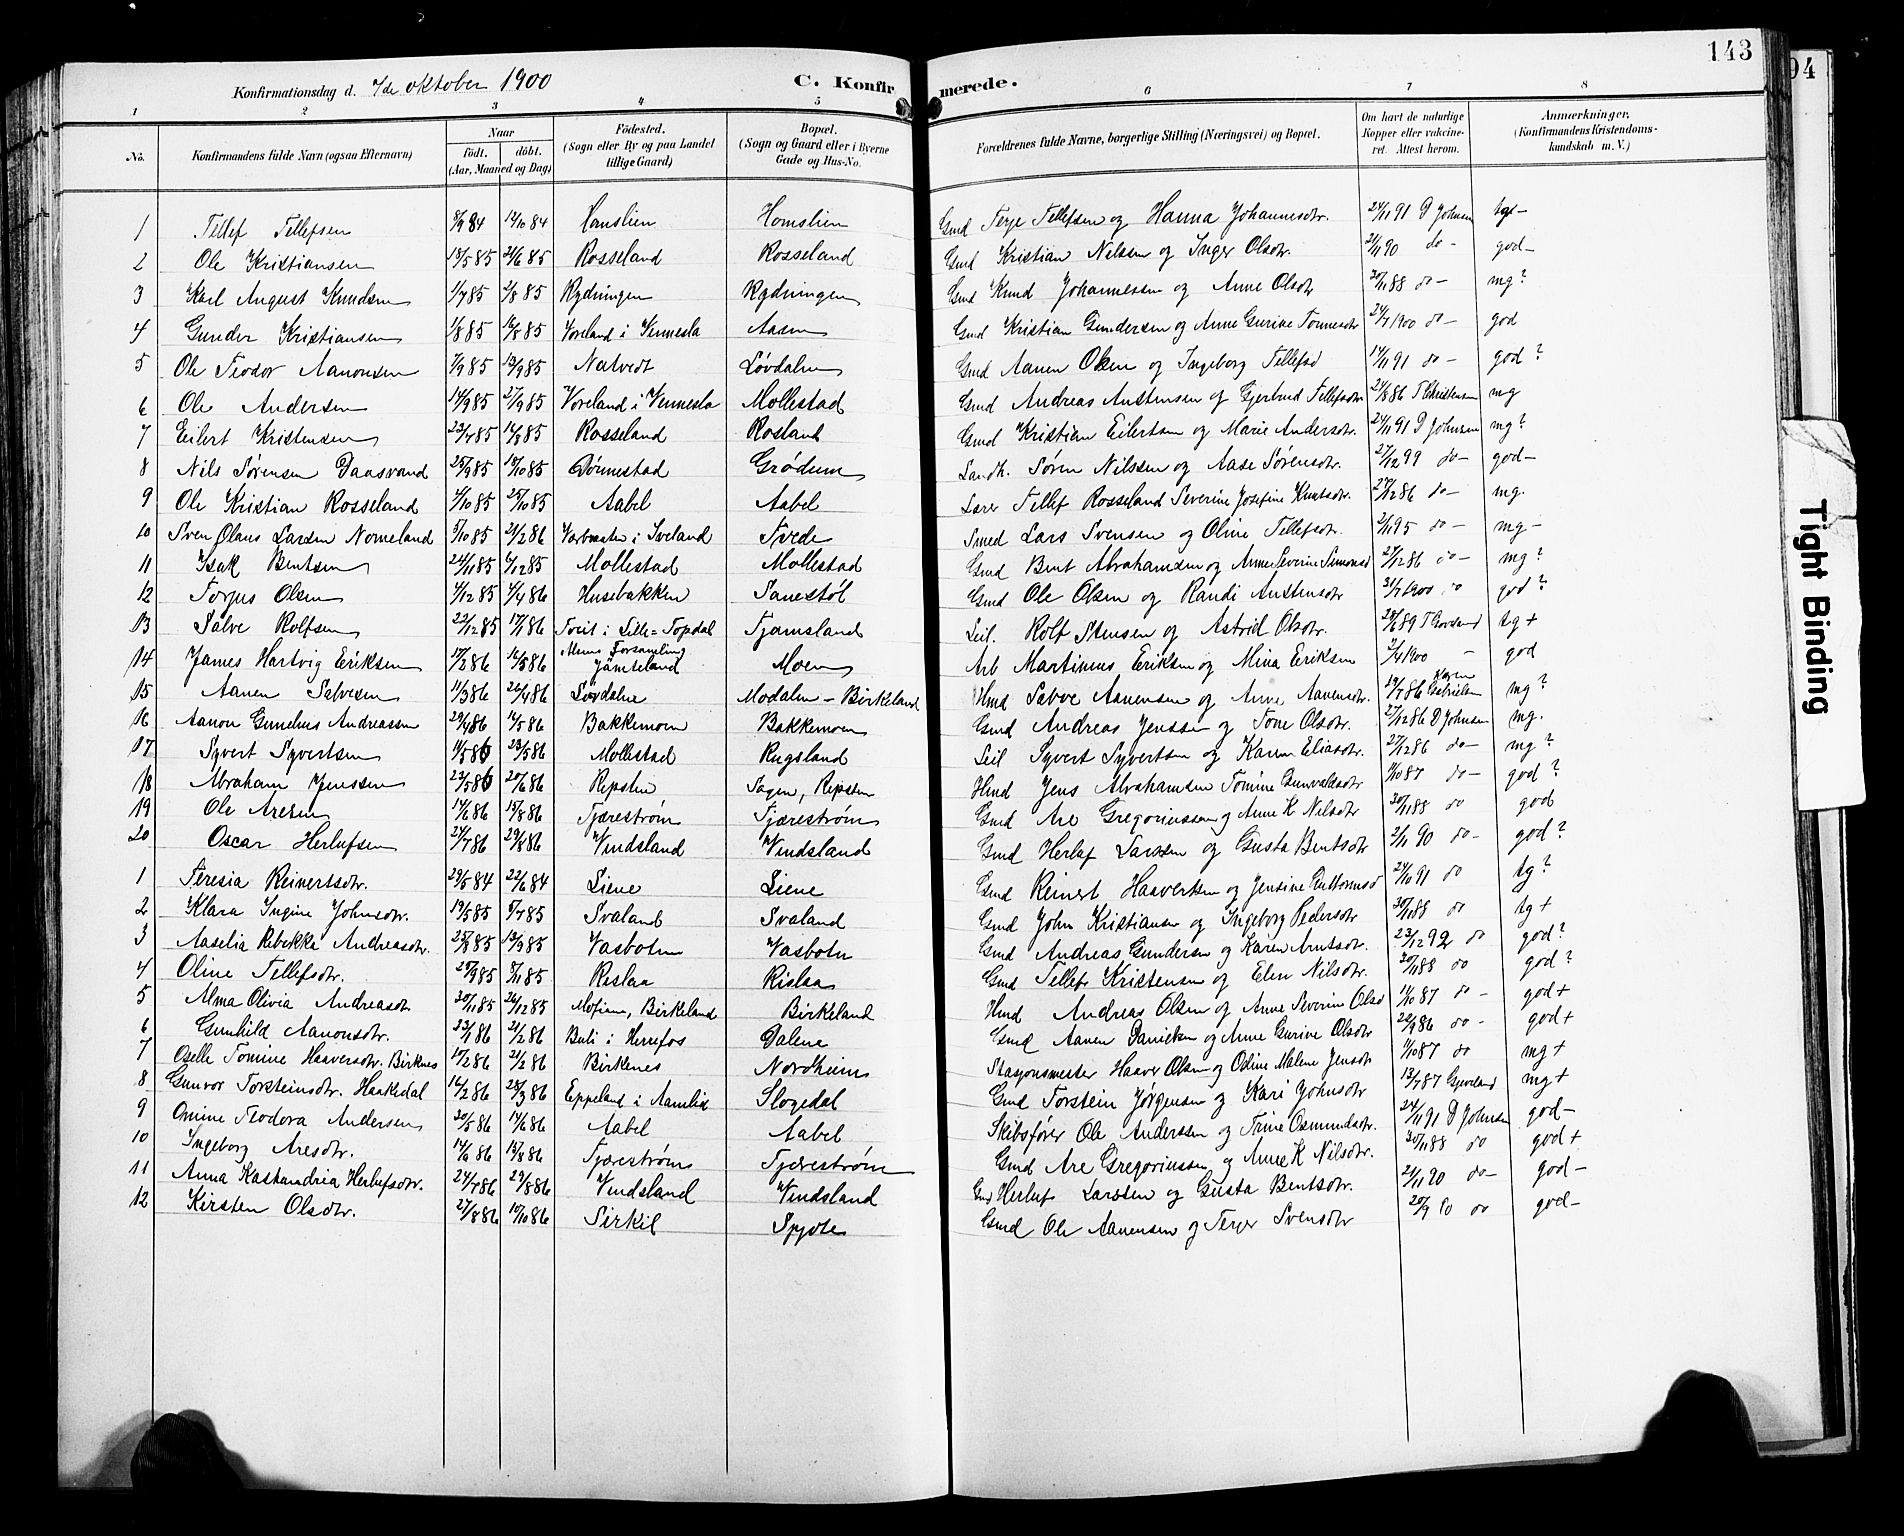 143
94
Konfirmationsdag d. 7de oktober 1900 C. Konfirmerede.
1 2 3 4 5 6 7 8
No. Konfirmandens fulde Navn (ogsaa Efternavn) Naar födt. döbt. (Aar, Maaned og Dag) Födested. (Sogn eller By og paa Landet tillige Gaard) Bopæl. (Sogn og Gaard eller i Byerne Gade og Hus-No. Forældrenes fulde Navne, borgerlige Stilling (Næringsvei) og Bopæl. Om havt de naturlige Kopper eller vakcineret. Attest herom. Anmerkninger. (Konfirmandens Kristendomskundskab m. V.)
1 Tellef Tellefsen 8/9 84 12/10 84 Homslien Homslien Gmd Terje Tellefsen og Hanna Johannesdtr. 24/11 91 D Johnsen tg-
2 Ole Kristiansen 13/5 85 21/6 85 Rosseland Rosseland Gmd Kristian Nilsen og Inger Olsdtr. 21/11 90 do - god-
3 Karl August Knudsen 1/7 85 2/8 85 Rydningen Rydningen Gmd Knud Johannessen og Anne Olsdtr 30/11 88 do - mg?
4 Gunder Kristiansen 1/8 85 16/8 85 Voreland i Vennesla Aasen Gmd Kristian Gundersen og Anne Gurine Tonnesdtr 24/7 1900 do - god
5 Ole Teodor Aanonsen 7/9 85 13/9 85 Natvedt Løvdalen Gmd Aanen Olsen og Ingeborg Tellefsd 14/11 91 do - god?
6 Ole Andersen 14/9 85 27/9 85 Voreland i Vennesla Mollestad Gmd Andreas Austensen og Gjertrud Tellefsdtr 24/8 86 T Christensen mg
7 Eilert Kristensen 23/7 85 16/8 85 Rosseland Rosland Gmd Kristian Eilertsen og Marie Andersdtr. 24/11 91 D Johnsen mg?
8 Nils Sørensen Daasvand 25/9 85 18/10 85 Dønnestad Grødum Landh. Søren Nilssen og Aase Sørensdtr. 27/12 99 do - god-
9 Ole Kristian Rosseland 4/10 85 25/10 85 Aabel Aabel Lærer Tellef Rosseland Severine Josefine Knutsdtr. 27/12 86 do - mg.
10 Sven Olaus Larsen Nomeland 5/10 85 21/2 86 i Iveland Tvede Smed Lars Svensen og Oline Tellefsdt 2/11 95 do - mg-
11 Isak Bentsen 24/11 85 6/12 85 Mollestad Mollestad Gmd Bent Abrahamsen og Anne Severine Simonsd 27/12 86 do - mg?
12 Torjus Olsen 4/12 85 4/4 86 Husebakken Sanestøl Gmd Ole Olsen og Randi Austensdtr 31/7 1900 do god?
13 Salve Rolfsen 22/12 85 17/1 86 Tveit i Lille=Topdal Tjamsland Leil. Rolf Stensen og Astrid Olsdtr. 28/6 89 T tg+
14 James Hartvig Eriksen 17/2 86 16/5 86 Forsamling Jämteland Moen Arb Martinus Eriksen og Mina Eriksen 2/4 1900 - god
15 Aanen Salvesen 11/3 86 26/4 86 Løvdalen Modalen - Birkeland Hmd Salve Aanensen og Anne Aanensdtr. 19/7 86 Karen Gabrielsen mg?
16 Aanon Gunelius Andreassen 29/4 86 16/5 86 Bakkemoen Bakkemoen Gmd Andreas Jenssen og Tone Olsdtr. 27/12 86 D Johnsen mg.
17 Syvert Syvertsen 11/5 86 23/5 86 Mollestad Rugsland Leil Syvert Syvertsen og Karen Eliasdtr. 27/12 86 do - mg?
18 Abraham Jenssen 23/5 86 20/6 86 Repsten Sagen, Repsten Hmd Jens Abrahamsen Tomine Gunvaldsdtr 11/10 87 do - god?
19 Ole Aresen 14/6 86 15/8 86 Tjærestrøm Tjærestrøm Gmd Are Gregoriussen og Anne K Nilsdtr 30/11 88 do god
20 Oscar Herlufsen 24/7 86 29/8 86 Vindsland Vindsland Gmd Herluf Larssen og Gusta Bentsdtr 21/11 90 do - god?
1 Teresia Reinertsdtr. 29/5 84 22/6 84 Liene Liene Gmd Reinert Haavertsen og Jensine Guttormsd 24/10 91 do tg?
2 Klara Ingine Johnsdtr. 19/5 85 5/7 85 Svaland Svaland Gmd John Kristiansen og Ingeborg Pedersdtr 30/11 88 do tg+
3 Aaselia Rebekka Andreasdtr. 25/8 85 13/9 85 Vasbotn Vasbotn Gmd Andreas Gundersen og Karen Arntsdtr. 23/12 92 do god?
4 Oline Tellefsdtr. 29/9 85 8/11 85 Rislaa Rislaa Gmd Tellef Kristensen og Elen Nilsdtr. 30/11 88 do god?
5 Alma Olivia Andreasdt 30/11 85 26/12 85 Mofinn, Birkeland Birkeland Hmd Andreas Olsen og Anne Severine Olsd 11/10 87 do - god+
6 Gunhild Aanonsdtr. 23/1 86 21/2 86 Beli i Herrefos Dalene Gmd Aanen Danielsen og Anne Gurine Olsdtr 22/9 86 do - god+
7 Oselle Tomine Haaversdtr. Birknes 17/2 86 21/2 86 Birkenes Nordheim Stasjonsmester Haaver Olsen og Odine Malene Jensdtr 11/10 87 do mg+
8 Gunvor Torsteinsdtr. Haakedal 16/2 86 28/3 86 Eppeland i Aamlid Slogedal Gmd Torstein Jørgensen og Kari Johnsdtr 13/7 87 Gjoveland mg+
9 Omine Teodora Andersen 20/5 86 14/6 86 Aabel Aabel Skibsfører Ole Anderssen og Trine Osmundsdtr. 24/11 91 D Johnsen god-
10 Ingeborg Aresdtr. 14/6 86 15/8 86 Tjærestrøm Tjærestrøm Gmd Are Gregoriussen og Anne K Nilsdtr. 30/11 88 do god+
11 Anna Kaskandria Herlufsdtr. 24/7 86 29/8 86 Vindsland Vindsland Gmd Herluf Larssen og Gusta Bentsdtr. 21/11 90 do - god-
12 Kirsten Olsdtr. 27/8 86 10/10 86 Sirkil Spjote Gmd Ole Aanensen og Terjer Svensdtr 20/9 80 do god-
Tight Binding